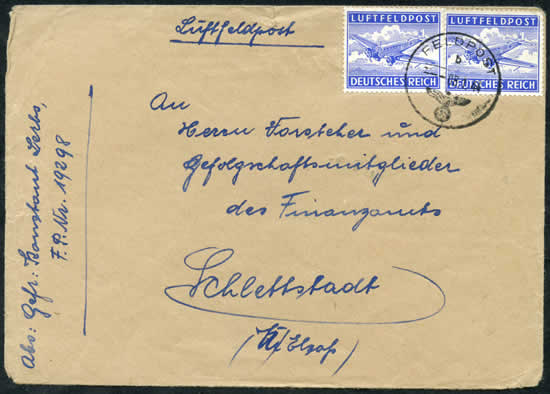 Luftfeldpost
LUFTFELDPOST
DEUTSCHES REICH
LUFTFELDPOST
DEUTSCHES REICH
FELDPOST
b
An
Herrn Vorsteher und
Gefolgschaftsmitglieder
des Finanzamts
Schlettstadt
Abs: Gefr: Konstant
F.P.Nr. 19298